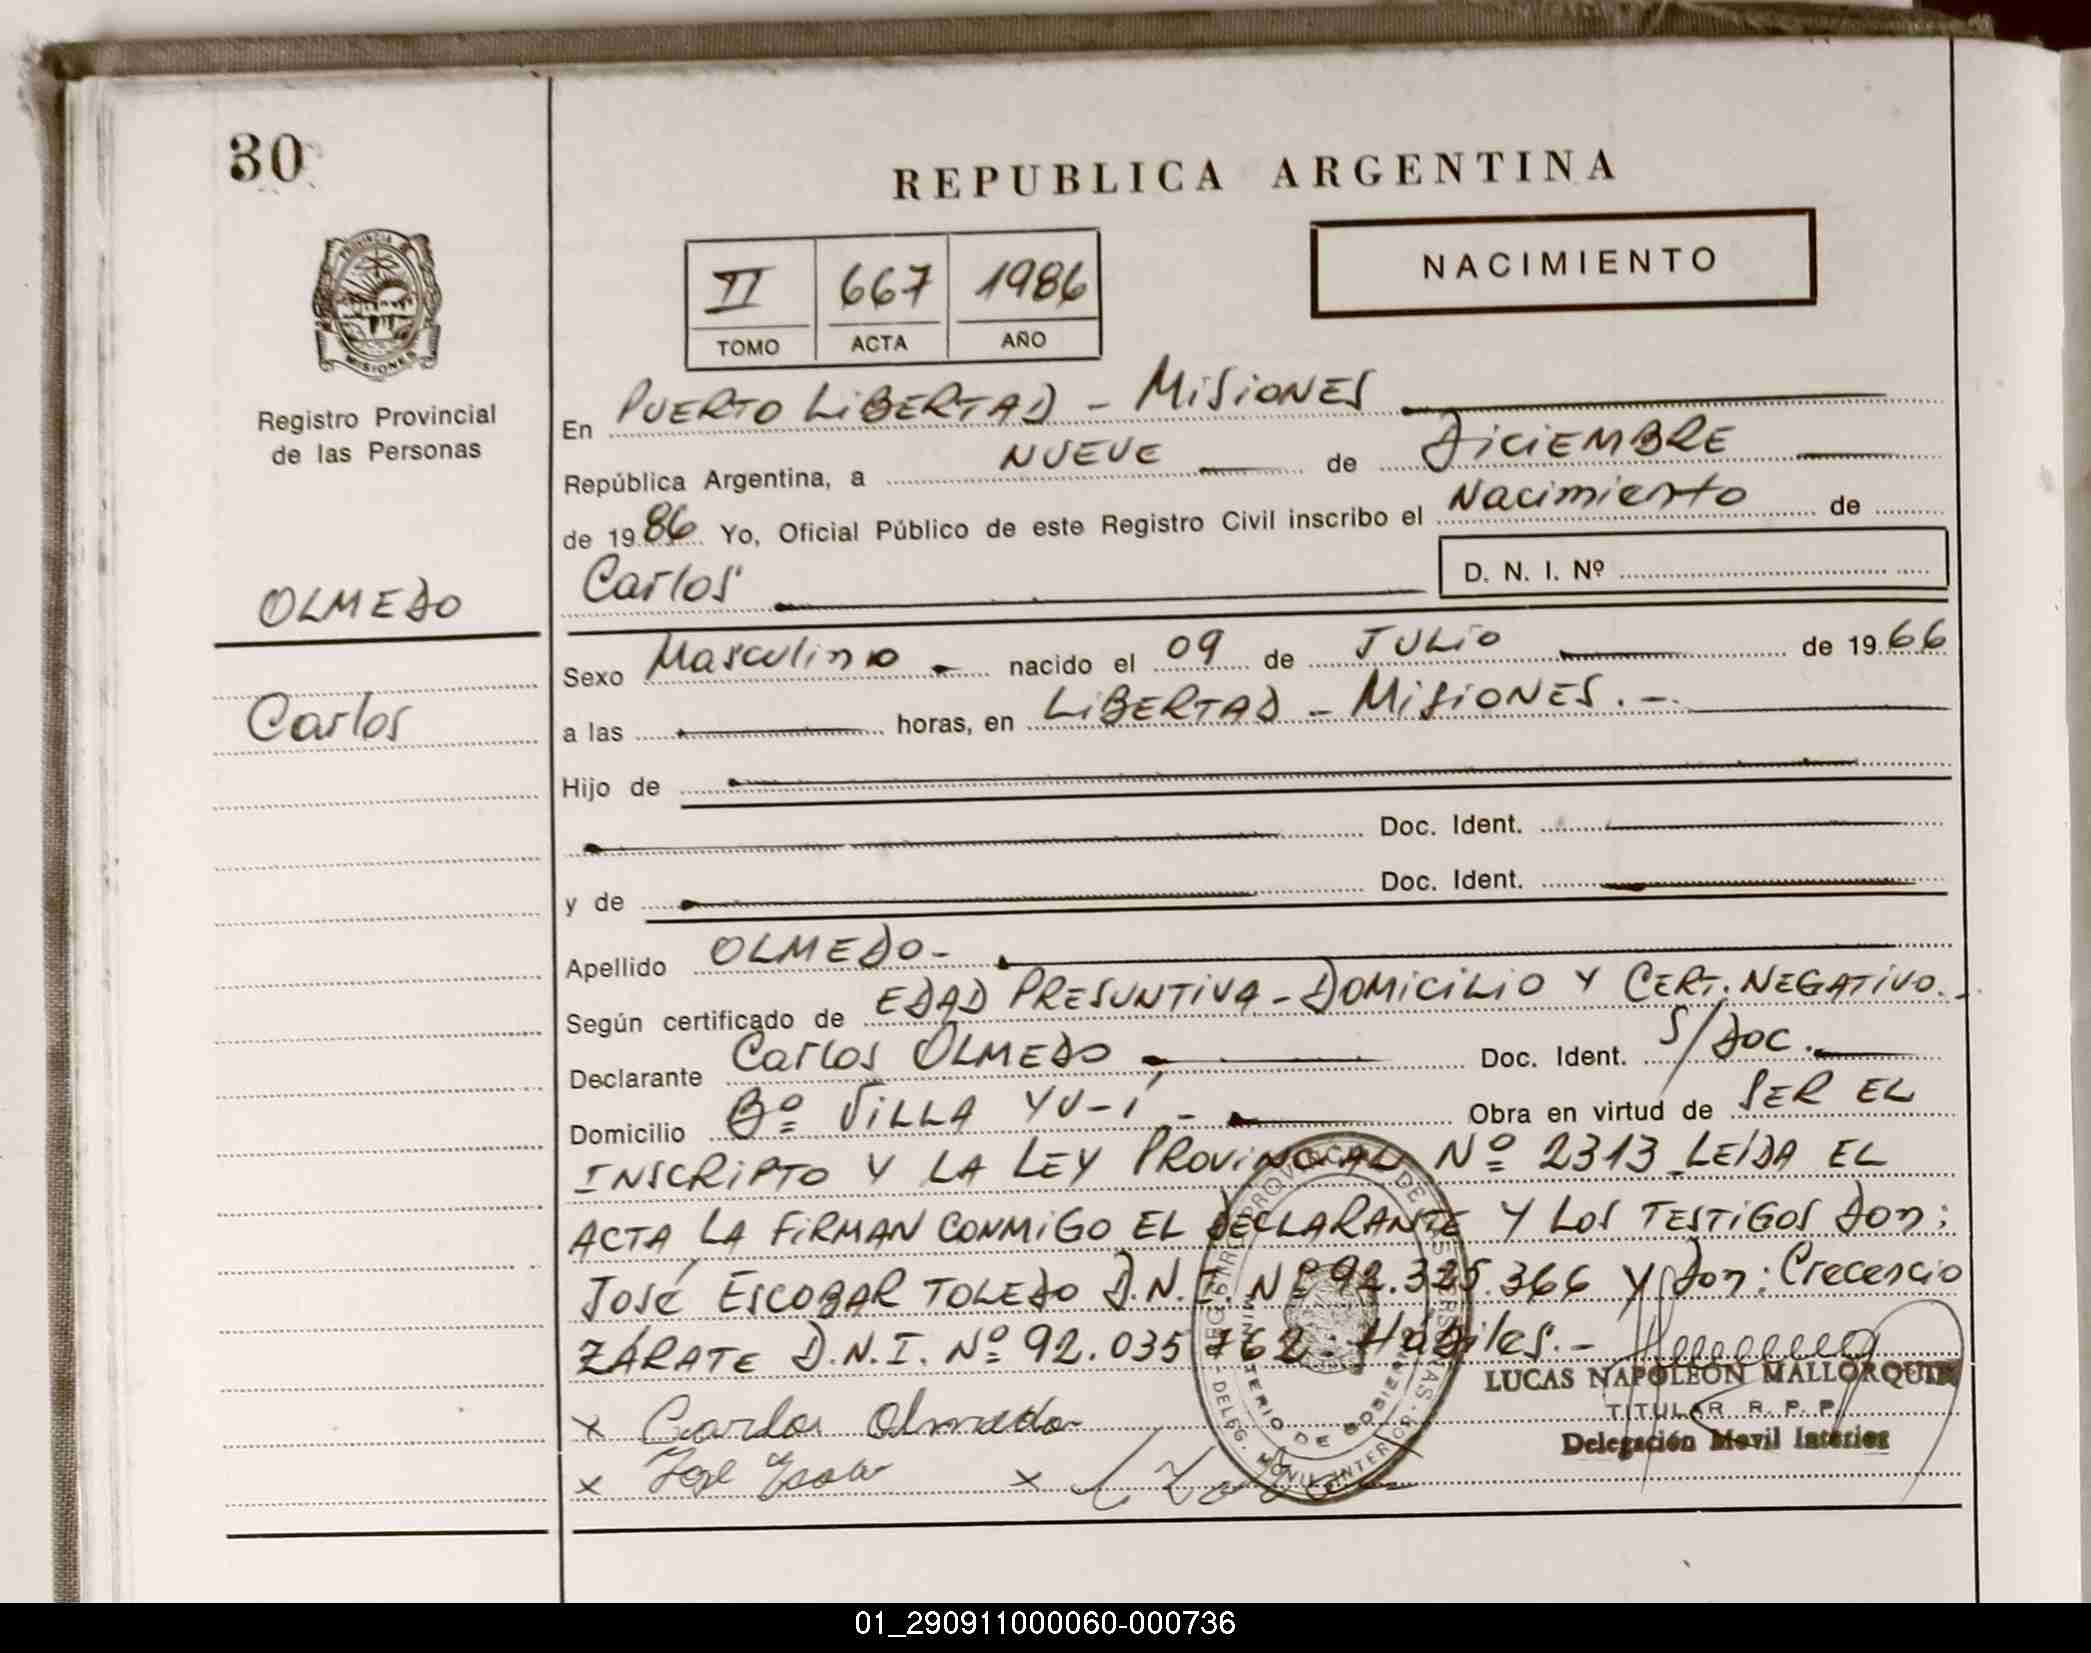 30
REPUBLICA ARGENTINA
PROVINCIA D
MISIONES
II 667 1986
TOMO ACTA AÑO
NACIMIENTO
Registro Provincial
de las Personas
En PUERTO LIBERTAD - MISIONES
República Argentina, a NUEVE de DICIEMBRE
de 1986 Yo, Oficial Público de este Registro Civil inscribo el Nacimiento de
Carlos D. N. I. Nº
OLMEDO
Carlos
Sexo Masculino nacido el 09 de JULIO de 1966
a las horas, en LIBERTAD - MISIONES. -
Hijo de
Doc. Ident.
y de Doc. Ident.
Apellido OLMEDO-
Según certificado de EDAD PRESUNTIVA - DOMICILIO Y CERT. NEGATIVO.
Declarante Carlos OLMEDO Doc. Ident. S/DOC.
Domicilio Bº VILLA YU-Í - Obra en virtud de SER EL
INSCRIPTO Y LA LEY PROVINCIAL Nº 2313 LEÍDA EL
ACTA LA FIRMAN CONMIGO EL DECLARANTE Y LOS TESTIGOS DON:
JOSÉ ESCOBAR TOLEDO D.N.I. Nº 92.325.366 Y Don: Crecencio
ZÁRATE D.N.I. Nº 92.035 762. Hábiles. -
LUCAS NAPOLEON MALLORQUIN
TITULAR R. P. P.
Delegación Movil Interior
x Carlos Olmedo
x José x
REGISTRO PROVINCIAL DE LAS PERSONAS - DELEG. MOVIL INTERIOR -
MINISTERIO DE GOBIERNO
01_290911000060-000736